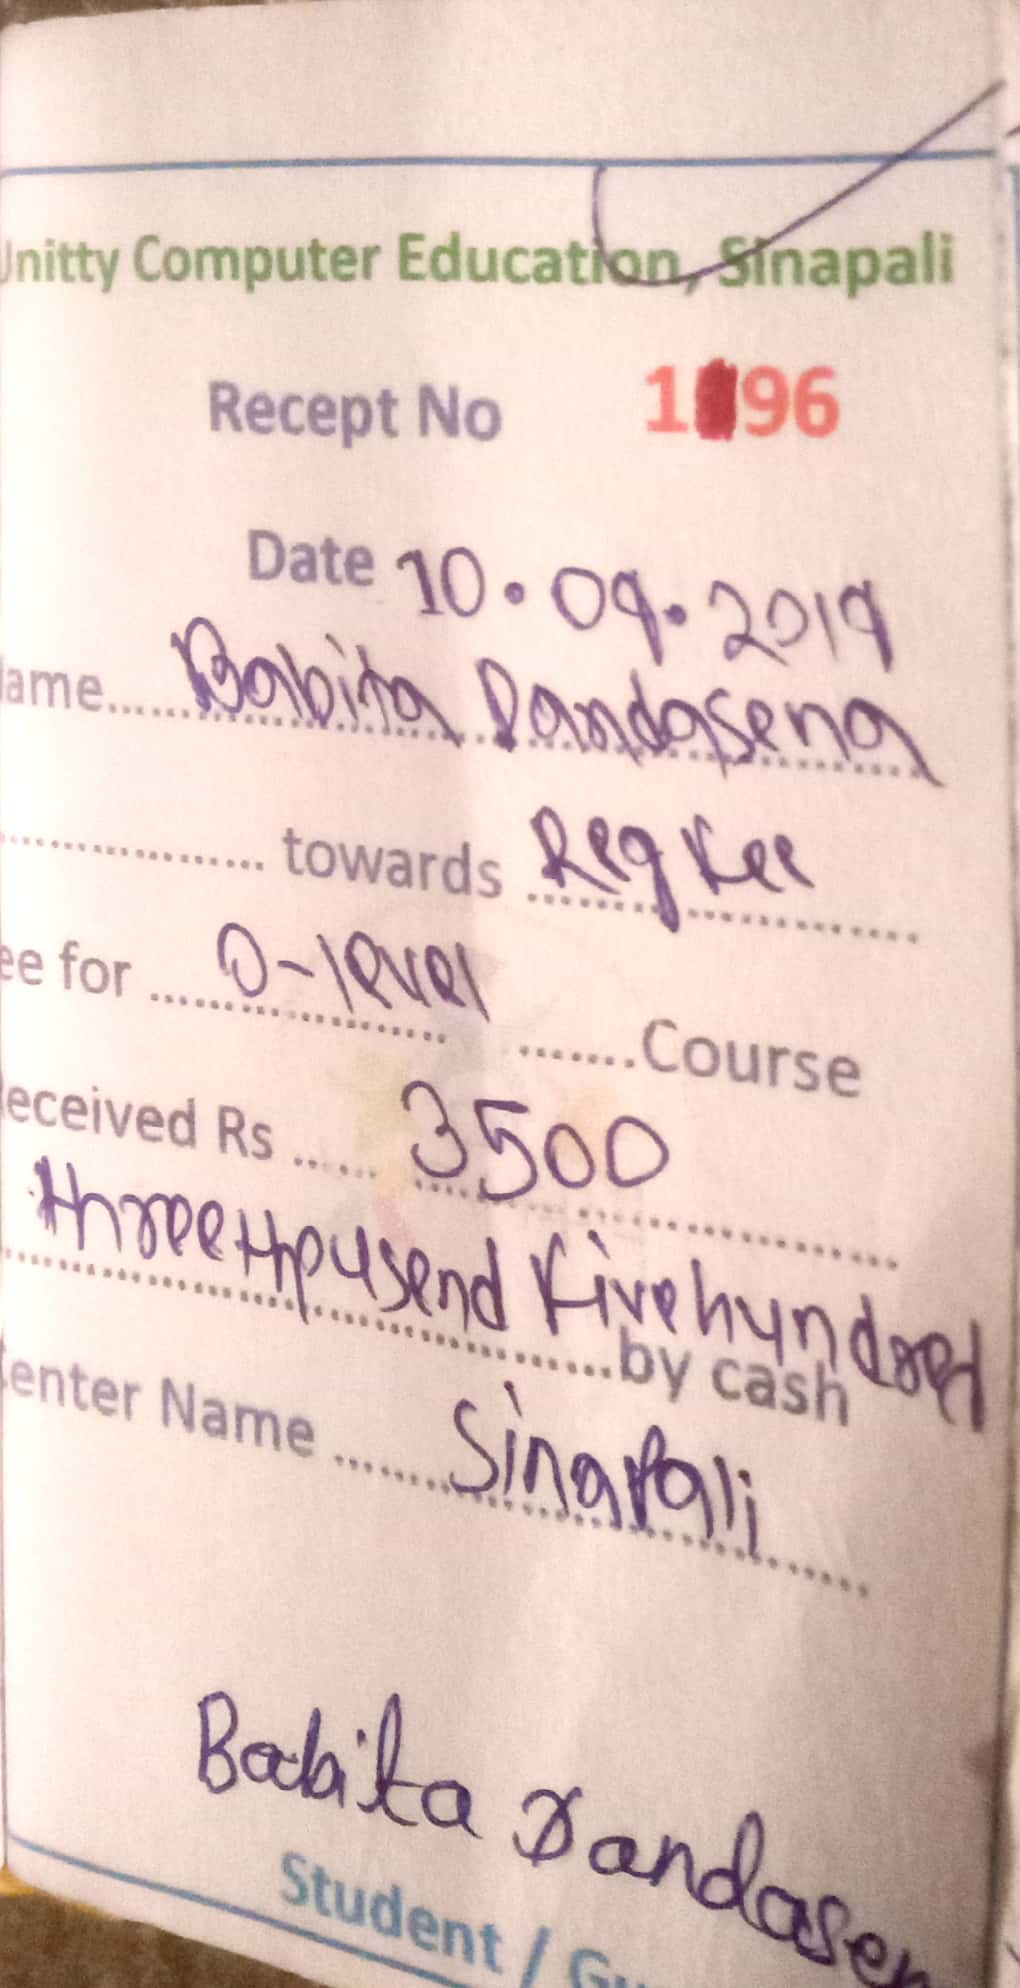 Unitty Computer Education, Sinapali
Recept No 1 96
Date 10.09.2019
Name...... Babita Dandasena
.................. towards Reg Fee
ee for ...... O-level ....... Course
Received Rs ...... 3500
three thousend Five hundred
...... by cash
Center Name ...... Sinapali
Babita Dandasen
Student / Gu